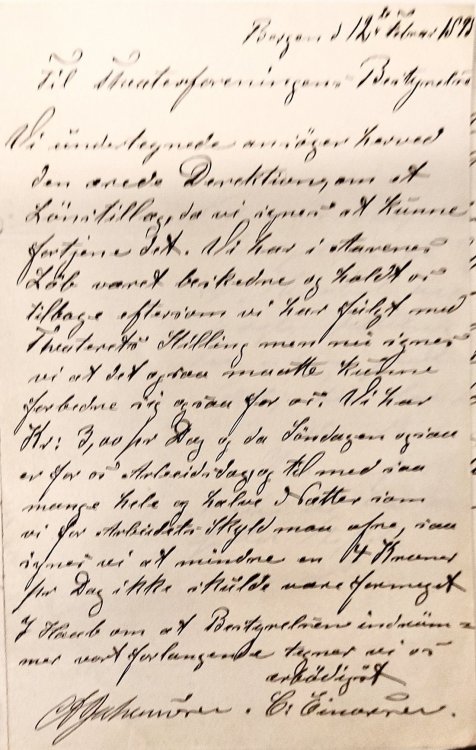 Bergen d 12te Februar 189
Til Theaterforeningens Bestyrelse
Vi undertegnede ansöger herved
den ærede Derektion, om et
Lönstillæg, da vi synes at kunne
fortjene det. Vi har i Aarenes
Löb været beskedne og holdt os
tilbage eftersom vi har fulgt med
Theaterets Stilling men nu synes
vi at det ogsaa maatte kunne
forbedre sig ogsaa for os. Vi har
Kr: 3,00 pr Dag og da Söndagen ogsaa
er for os Arbeidsdag, og til med saa
mange hele og halve Nætter som
vi for Arbeidets Skyld maa ofre, saa
synes vi at mindre en 4 Kroner
pr Dag ikke skulde være formeget
I Haab om at Bestyrelsen indröm=
mer vort forlangende tegner vi os
ærbödigst
C: Einarsen.